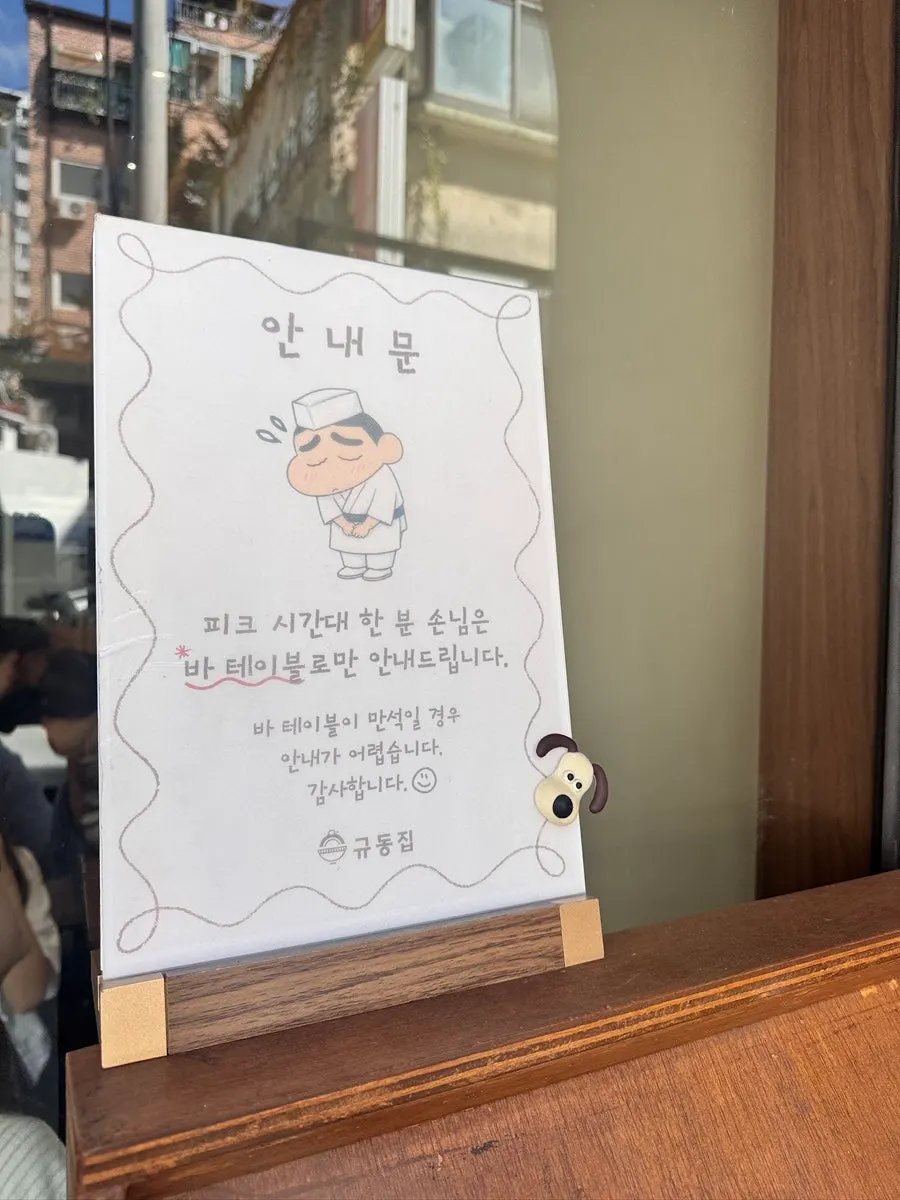 안내문
피크 시간대 한 분 손님은
*바 테이블로만 안내드립니다.
바 테이블이 만석일 경우
안내가 어렵습니다.
감사합니다.
규동집